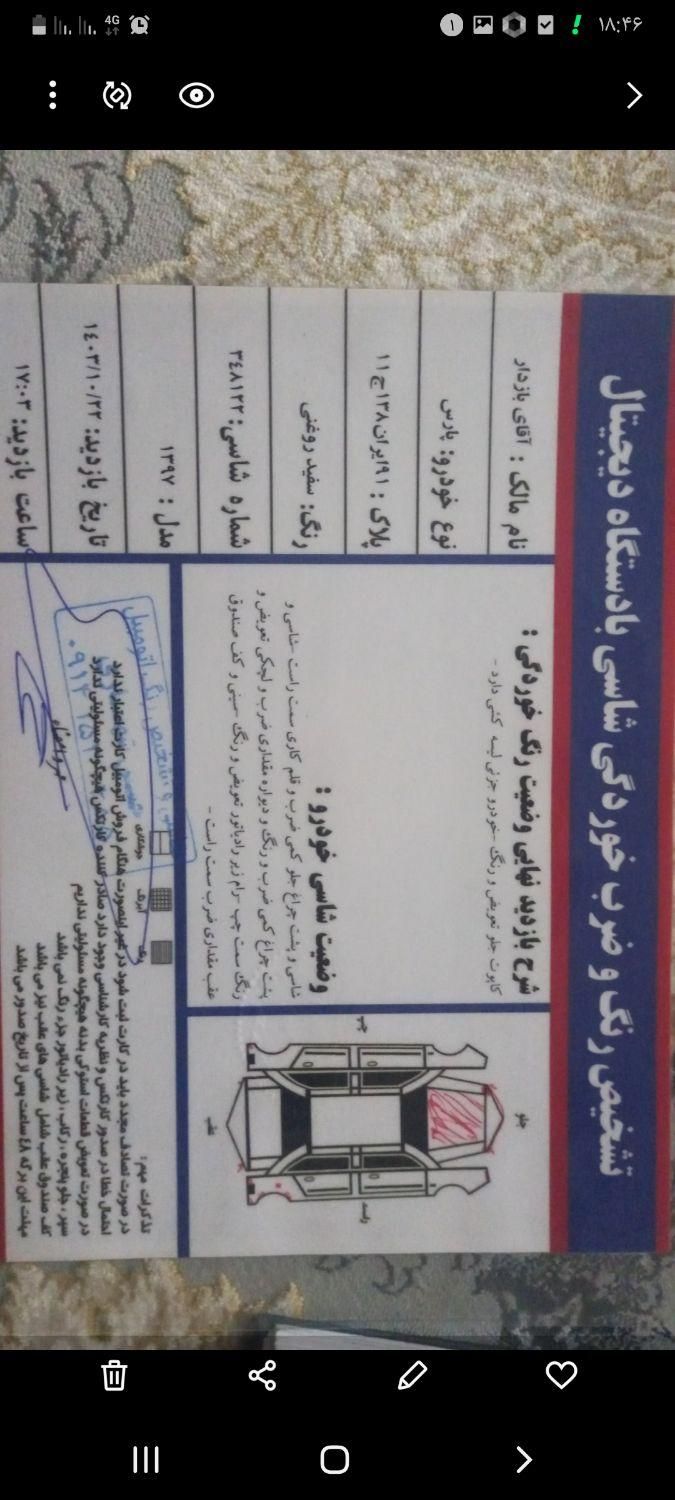 ۱۸:۴۶
4G
۱
تشخیص رنگ و ضرب خوردگی شاسی بادستگاه دیجیتال
نام مالک : آقای بازدار
نوع خودرو: پارس
پلاک : ۹۱ایران۱۳۸ج۱۱
رنگ: سفید روغنی
شماره شاسی: ۳۴۸۱۲۲
مدل : ۱۳۹۷
تاریخ بازدید: ۱۴۰۳/۱۰/۲۲
ساعت بازدید: ۱۷:۰۳
شرح بازدید نهایی وضعیت رنگ خوردگی :
کاپوت جلو تعویض و رنگ -خودرو جزئی لیسه کشی دارد -
وضعیت شاسی خودرو :
شاسی و پشت چراغ جلو کمی ضرب و قلم کاری سمت راست -شاسی و
پشت چراغ کمی ضرب و رنگ و دیواره مقداری ضرب و لچکی تعویض و
رنگ سمت چپ -رام زیر رادیاتور تعویض و رنگ -سینی و کف صندوق
عقب مقداری ضرب سمت راست -
جلو
عقب
چپ
راست
رنگ
آبرنگ
جوشکاری
تذکرات مهم :
در صورت تصادف مجدد باید در کارت ثبت شود در غیر اینصورت هنگام فروش اتومبیل کارت اعتبار ندارد
احتمال خطا در صدور کارتکس و نظریه کارشناسی وجود دارد صادر کننده کارتکس هیچگونه مسئولیتی ندارد
در صورت تعویض قطعات استوکی بدنه هیچگونه مسئولیتی نداریم
سپر ، جلو پنجره ، رکاب ، زیر رادیاتور جزء رنگ نمی باشد
کف صندوق عقب شامل شاسی های عقب نیز می باشد
مهلت این برگه ۴۸ ساعت پس از تاریخ صدور می باشد
مهر و امضاء
تشخیص رنگ اتومبیل